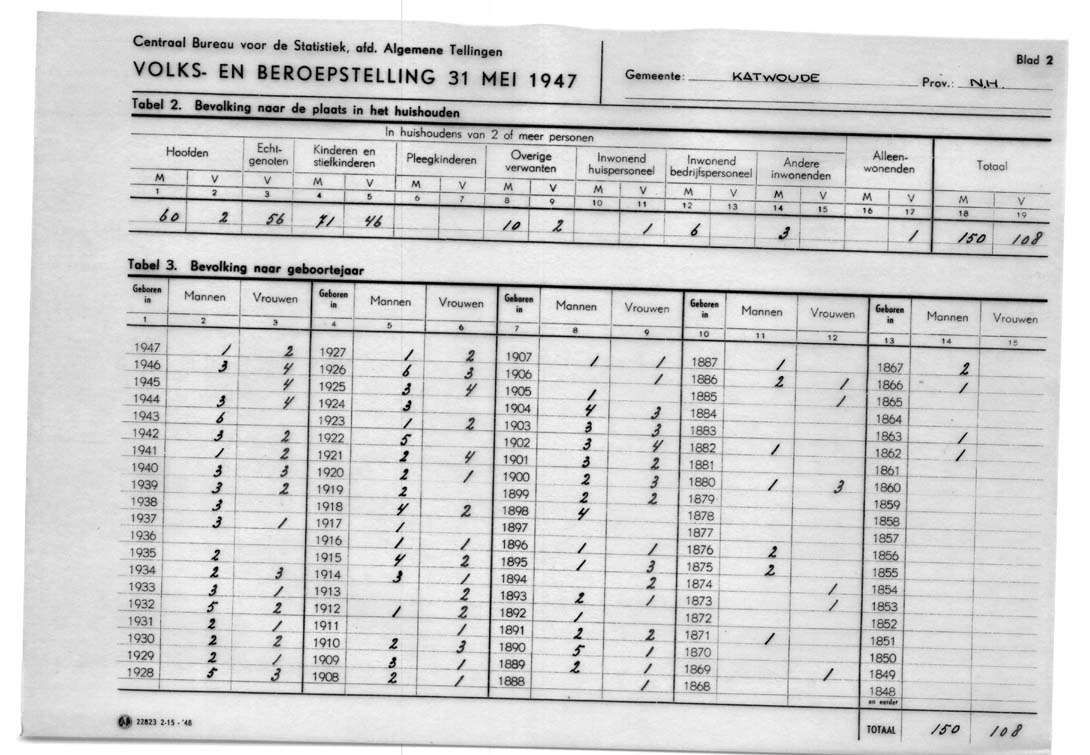 Centraal Bureau voor de Statistiek, afd. Algemene Tellingen
VOLKS- EN BEROEPSTELLING 31 MEI 1947
Gemeente: KATWOUDE Prov.: N.H.
Blad 2
Tabel 2. Bevolking naar de plaats in het huishouden
In huishoudens van 2 of meer personen
Hoofden Echt-genoten Kinderen en stiefkinderen Pleegkinderen Overige verwanten Inwonend huispersoneel Inwonend bedrijfspersoneel Andere inwonenden Alleen-wonenden Totaal
M V V M V M V M V M V M V M V M V M V
1 2 3 4 5 6 7 8 9 10 11 12 13 14 15 16 17 18 19
60 2 56 71 46 10 2 1 6 3 1 150 108
Tabel 3. Bevolking naar geboortejaar
Geboren in Mannen Vrouwen Geboren in Mannen Vrouwen Geboren in Mannen Vrouwen Geboren in Mannen Vrouwen Geboren in Mannen Vrouwen
1 2 3 4 5 6 7 8 9 10 11 12 13 14 15
1947 1 2 1927 1 2 1907 1 1 1887 1 1867 2
1946 3 4 1926 6 3 1906 1 1886 2 1 1866 1
1945 4 1925 3 4 1905 1 1885 1 1865
1944 3 4 1924 3 1904 4 3 1884 1864
1943 6 1923 1 2 1903 3 3 1883 1863 1
1942 3 2 1922 5 1902 3 4 1882 1 1862 1
1941 1 2 1921 2 4 1901 3 2 1881 1861
1940 3 3 1920 2 1 1900 2 3 1880 1 3 1860
1939 3 2 1919 2 1899 2 2 1879 1859
1938 3 1918 4 2 1898 4 1878 1858
1937 3 1 1917 1 1897 1877 1857
1936 1916 1 1 1896 1 1 1876 2 1856
1935 2 1915 4 2 1895 1 3 1875 2 1855
1934 2 3 1914 3 1 1894 2 1874 1 1854
1933 3 1 1913 2 1893 2 1 1873 1 1853
1932 5 2 1912 1 2 1892 1 1872 1852
1931 2 1 1911 1 1891 2 2 1871 1 1851
1930 2 2 1910 2 3 1890 5 1 1870 1850
1929 2 1 1909 3 1 1889 2 1 1869 1 1849
1928 5 3 1908 2 1 1888 1 1868 1848
en eerder
TOTAAL 150 108
22823 2-15-'48